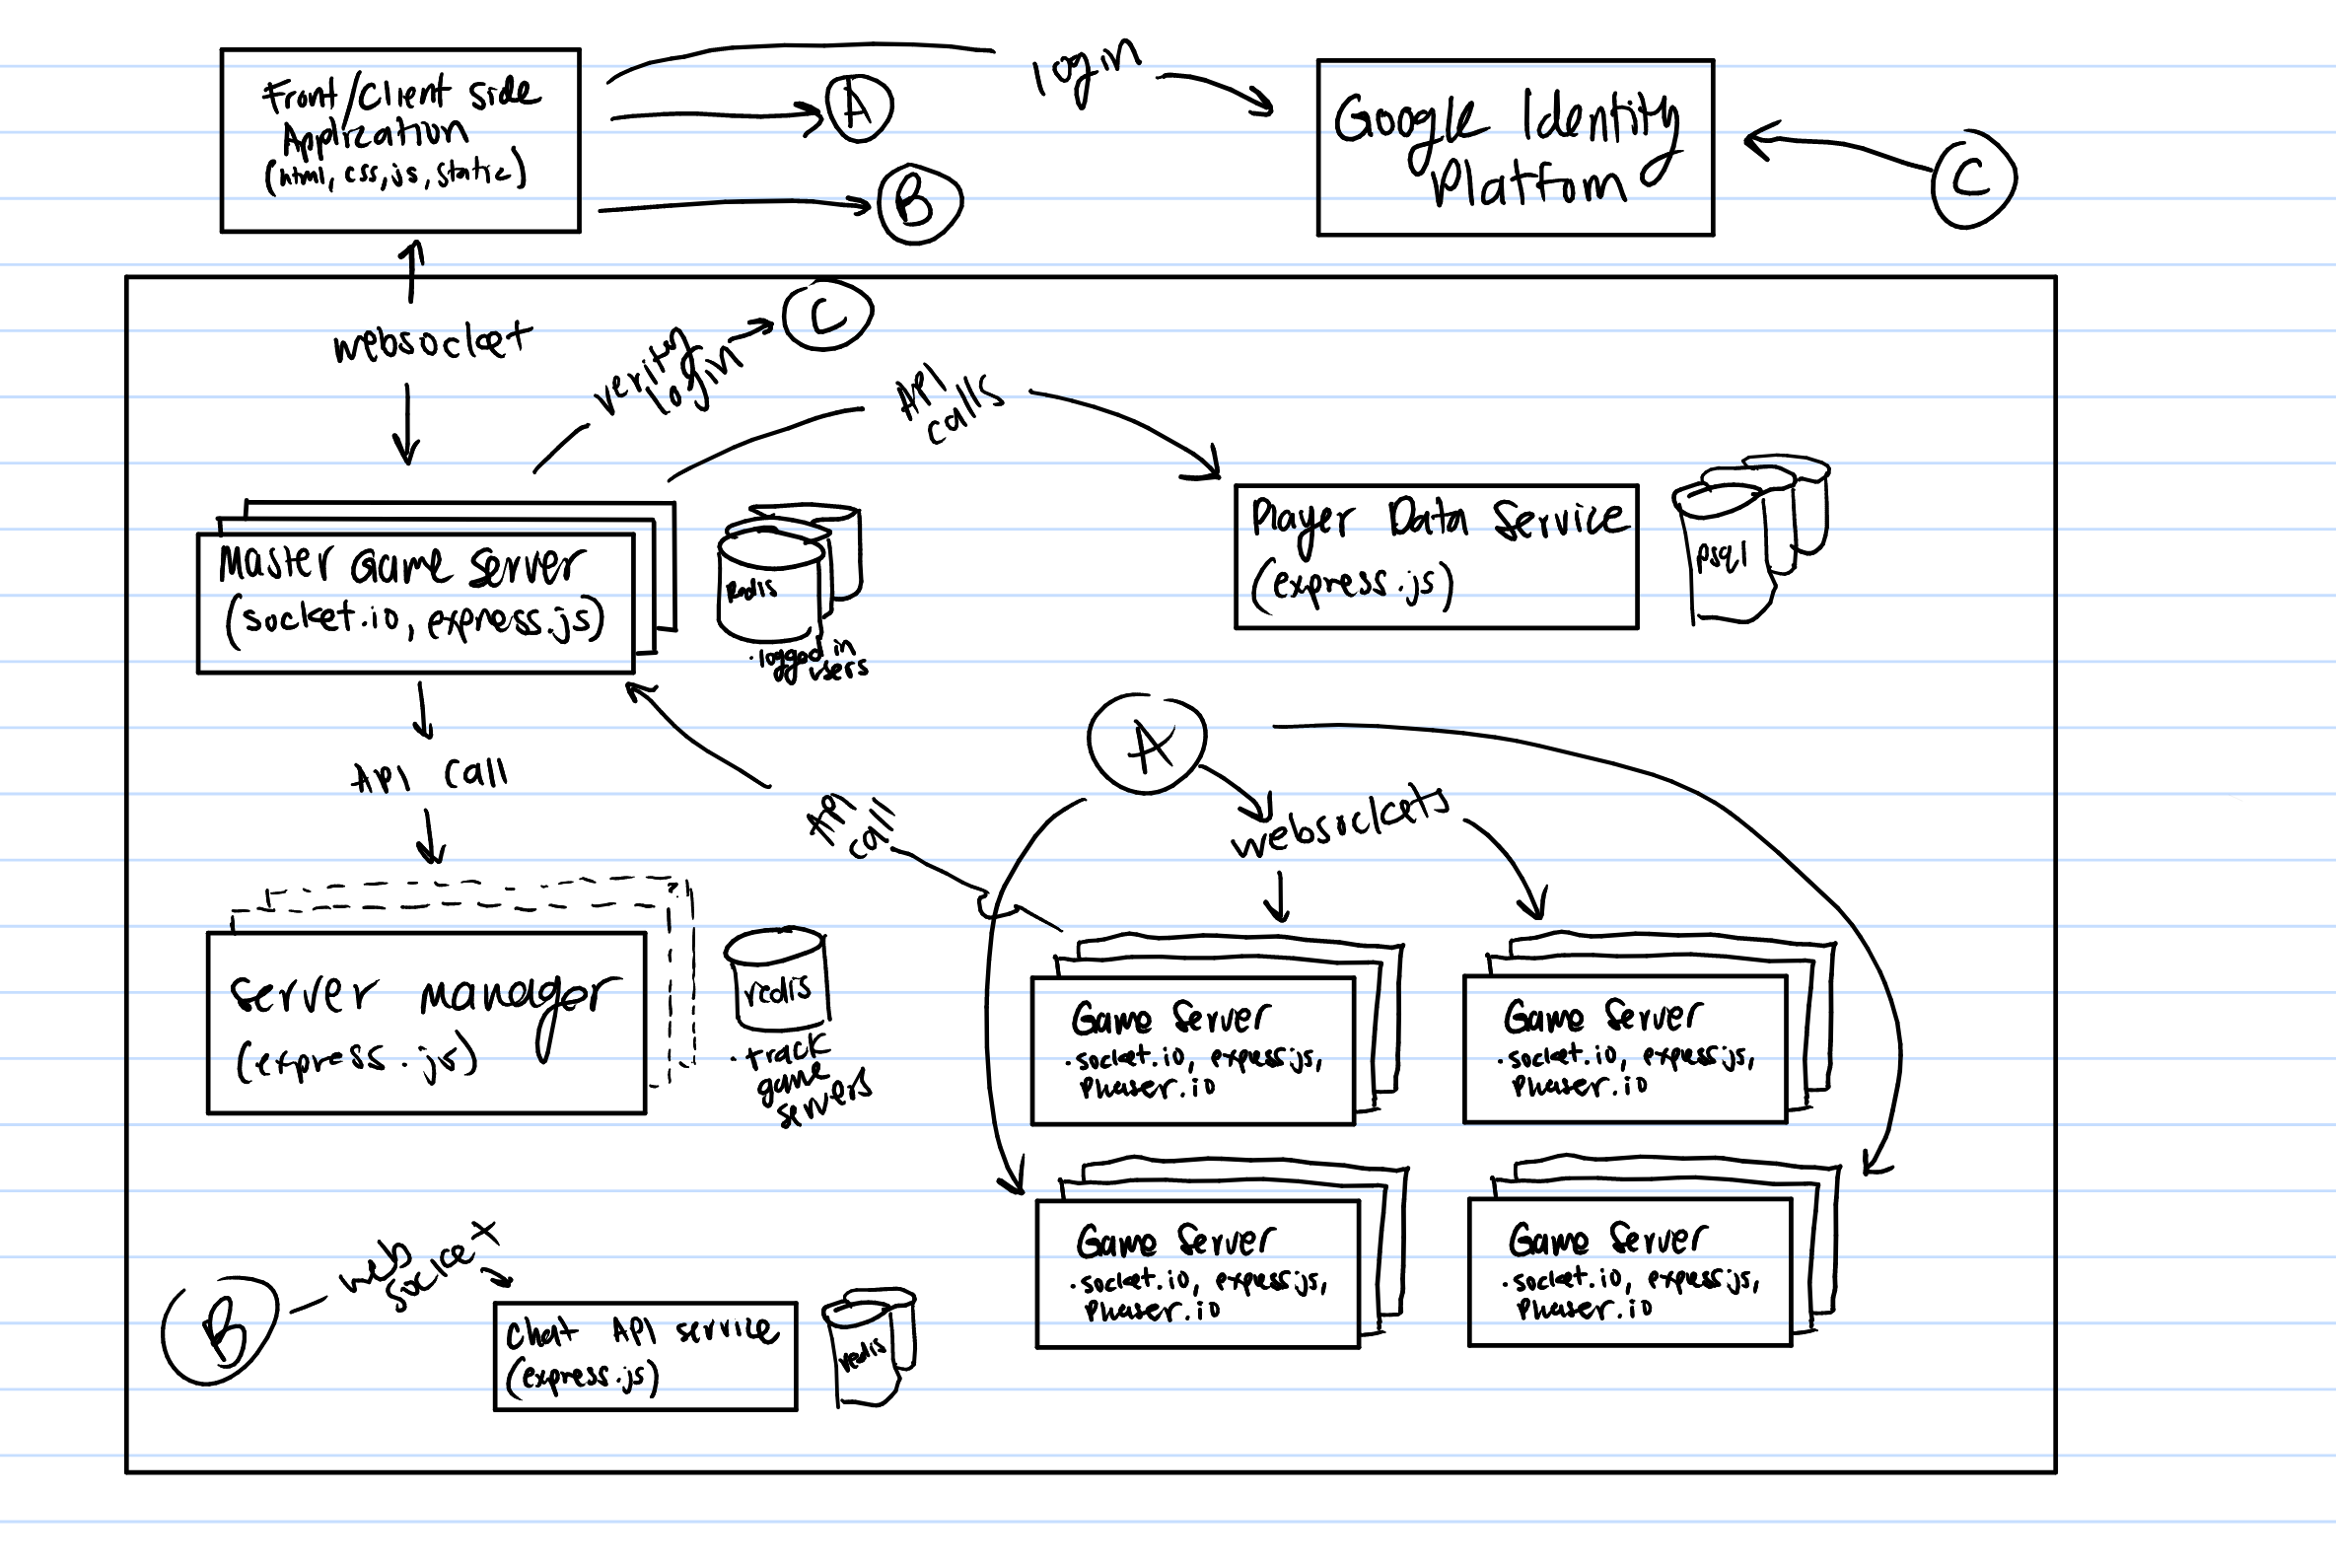 Front/Client side
Application
(html, css, js, static)
login
A
B
Google Identity
Platfom
C
websocket
verify
login
C
API
calls
Master Game Server
(socket.io, express.js)
Redis
·logged in
users
Player Data Service
(express.js)
psql
API call
API
call
A
websockets
server manager
(express.js)
redis
·track
game
servers
Game Server
·socket.io, express.js,
Phaser.io
Game Server
·socket.io, express.js,
Phaser.io
Game Server
·socket.io, express.js,
Phaser.io
Game Server
·socket.io, express.js,
Phaser.io
B
web
socket
Chat API service
(express.js)
redis